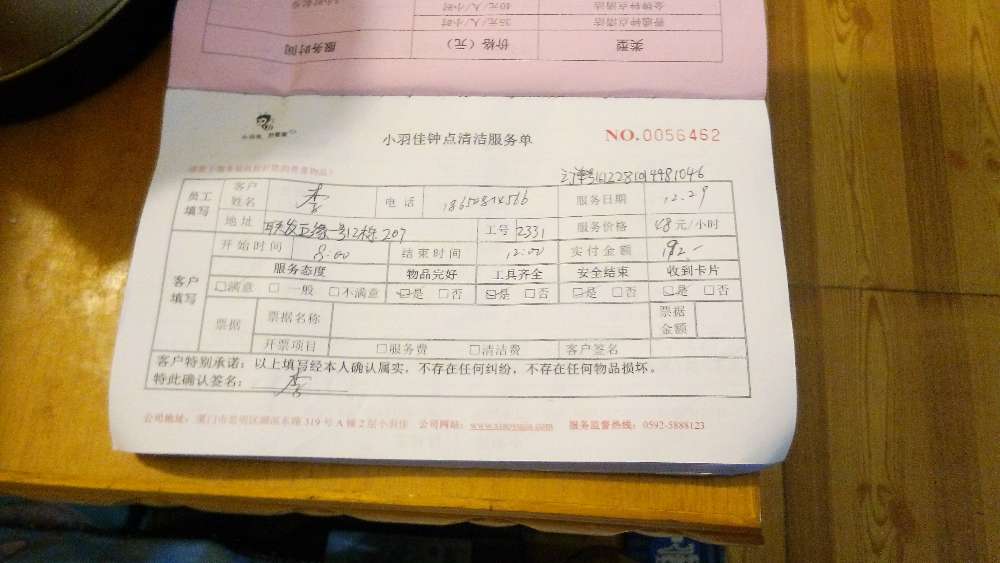 类型 价格（元） 服务时间
普通钟点清洁 35元/人/小时
金牌钟点清洁 40元/人/小时
小羽佳钟点清洁服务单 NO.0056462
员工填写 客户姓名 李 电话 服务日期 12.29
地址 207 工号 2331 服务价格 48元/小时
客户填写 开始时间 8:00 结束时间 12:00 实付金额 192.-
服务态度 物品完好 工具齐全 安全结束 收到卡片
□满意 □一般 □不满意 ☑是 □否 ☑是 □否 ☑是 □否 ☑是 □否
票据 票据名称 票据金额
开票项目 □服务费 □清洁费 客户签名
客户特别承诺：以上填写经本人确认属实，不存在任何纠纷，不存在任何物品损坏。
特此确认签名： 李
公司地址：厦门市思明区湖滨东路319号A幢2层小羽佳 公司网站：www.xiaoyujia.com 服务监督热线：0592-5888123